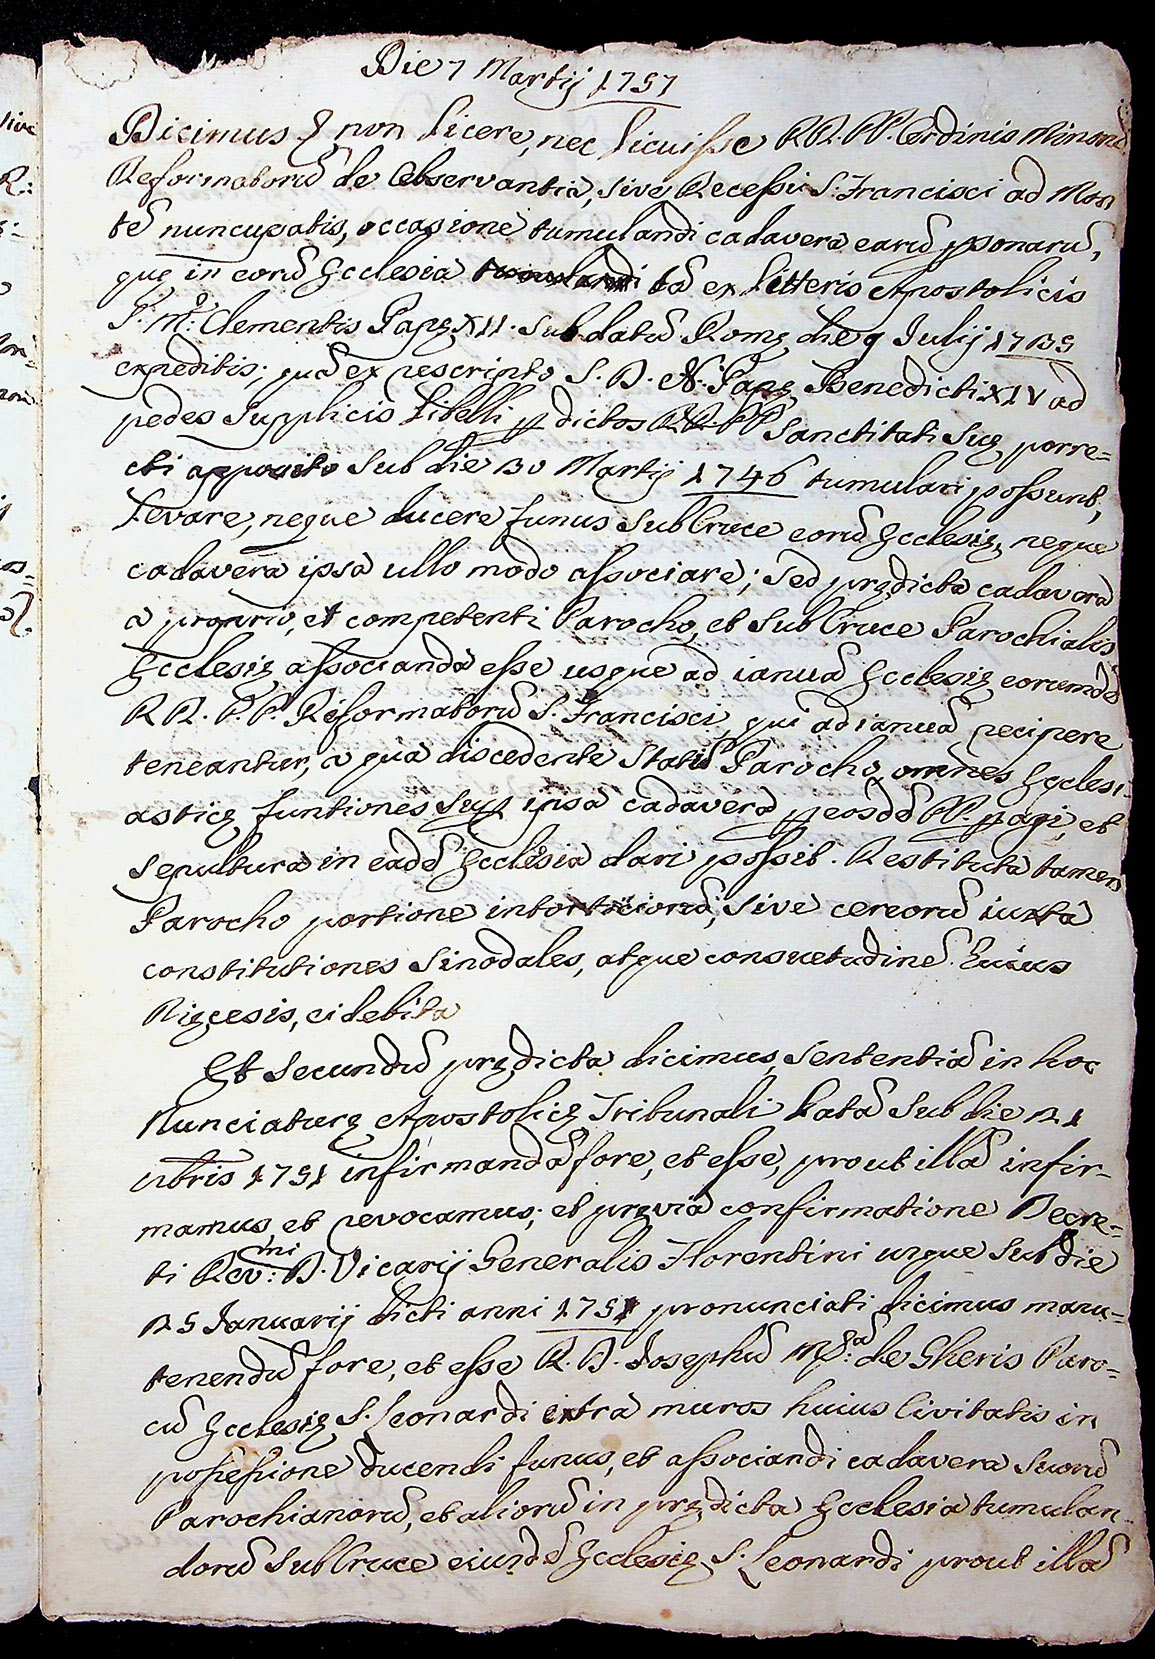 Die 7 Martij 1757
Dicimus & non licere, nec licuisse RR. PP. Ordinis Minorũ
Reformatorũ de Observantia, sive Recessu S: Francisci ad Mon
tẽ nuncupatis, occasione tumulandi cadavera earũ psonarũ,
quę in eorũ Ecclesia tumulandi tã ex litteris Apostolicis
S. Mͦ: Clementis Papę XII. sub datũ Romę die 9 Julij 1735
expeditis; quã ex rescripto S. D. N. Papę Benedicti XIV ad
pedes supplicis libelli p dictos RR. PP. Sanctitati Suę porre=
cti apposito sub die 30 Martij 1746 tumulari possunt,
levare, neque ducere funus sub Cruce eorũ Ecclesię, neque
cadavera ipsa ullo modo associare; sed prędicta cadavera
a proprio, et competenti Parocho, et sub Cruce Parochialis
Ecclesię associanda esse usque ad ianuã Ecclesię eorumdẽ
RR. P.P. Reformatorũ S. Francisci, qui ad ianuã recipere
teneantur, a qua discedente statĩ Parocho, omnes Ecclesi-
asticę funtiones sup ipsa cadavera p eosdẽ PP. pagi, et
sepultura in eadẽ Ecclesia dari possit. Restituta tamen
Parocho portione intortitiorũ, sive cereorũ iuxta
constitutiones Sinodales, atque consuetudinẽ huius
Dięcesis, ei debita
Et secundũ prędicta dicimus, sententiã in hoc
Nunciaturę Apostolicę Tribunali latã sub die 21
1751 infirmandã fore, et esse, prout illã infir-
mamus, et revocamus; et pręvia confirmatione Decre=
ti Rev:ᵐⁱ D. Vicarij Generalis Florentini usque sub die
25 Januarij dicti anni 1751 pronunciati dicimus manu=
tenendũ fore, et esse R. D. Josephũ Mͣ: de Gheris Paro=
cũ Ecclesię S. Leonardi extra muros huius Civitatis in
possessione ducendi funus, et associandi cadavera suorũ
Parochianorũ, et aliorũ in prędicta Ecclesia tumulan-
dorũ sub Cruce eiusdẽ Ecclesię S. Leonardi prout illã